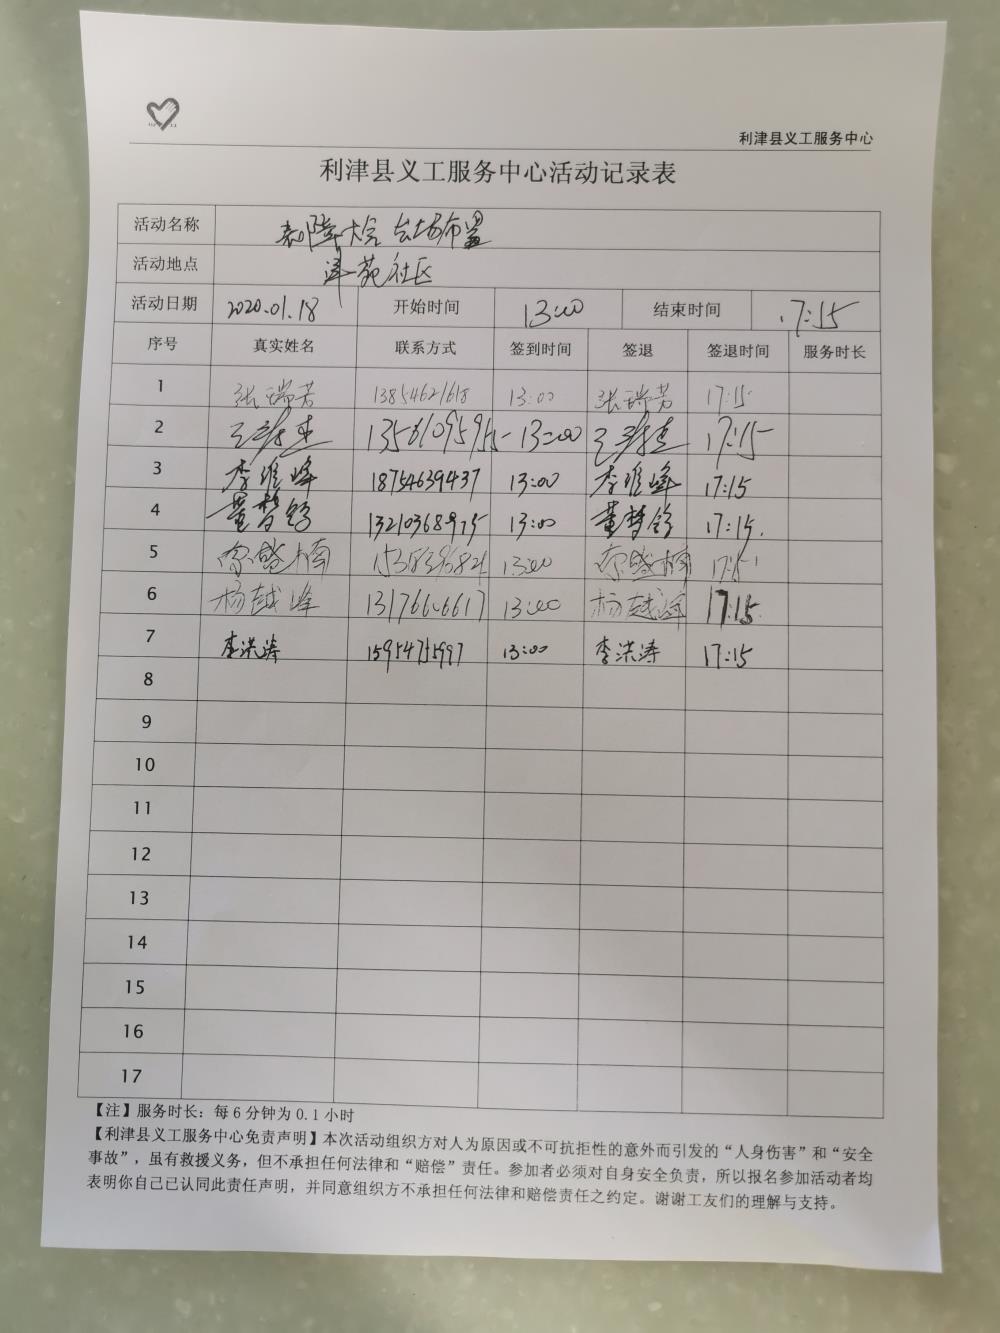 利津县义工服务中心
利津县义工服务中心活动记录表
活动名称 会场布置
活动地点 津苑社区
活动日期 2020.01.18 开始时间 13:00 结束时间 17:15
序号 真实姓名 联系方式 签到时间 签退 签退时间 服务时长
1 张瑞芳 13854621618 13:00 张瑞芳 17:15
2 13561095955 13:00 17:15
3 李维峰 18754639437 13:00 李维峰 17:15
4 董梦 13210368975 13:00 董梦 17:15.
5 盛楠 13:00 盛楠 17:15
6 杨越峰 13176606617 13:00 杨越峰 17:15
7 李洪涛 15954755997 13:00 李洪涛 17:15
8
9
10
11
12
13
14
15
16
17
【注】服务时长：每6分钟为0.1小时
【利津县义工服务中心免责声明】本次活动组织方对人为原因或不可抗拒性的意外而引发的“人身伤害”和“安全
事故”，虽有救援义务，但不承担任何法律和“赔偿”责任。参加者必须对自身安全负责，所以报名参加活动者均
表明你自己已认同此责任声明，并同意组织方不承担任何法律和赔偿责任之约定。谢谢工友们的理解与支持。